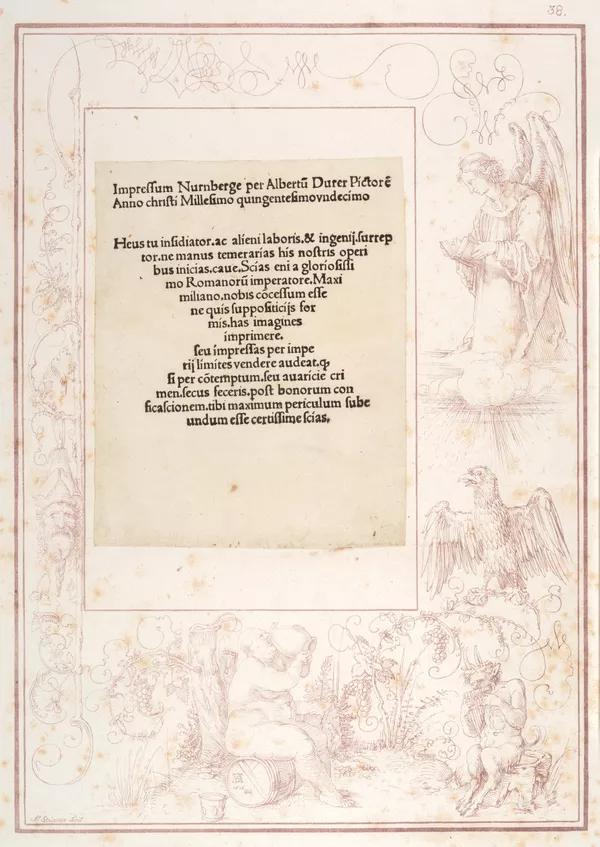 38.
Impreſſum Nurnberge per Albertū Durer Pictorē
Anno chriſti Milleſimo quingenteſimovndecimo
Heus tu inſidiator.ac alieni laboris.& ingenij.ſurrep
tor.ne manus temerarias his noſtris operi
bus inicias.caue.Scias eni a glorioſiſſi
mo Romanorū imperatore.Maxi
miliano.nobis cōceſſum eſſe
ne quis ſuppoſiticijs for
mis.has imagines
imprimere.
ſeu impreſſas per impe
rij limites vendere audeat.q
ſi per cōtemptum.ſeu avaricie cri
men.ſecus feceris.poſt bonorum con
fiſcaſcionem.tibi maximum periculum ſube
undum eſſe certiſſime ſcias.